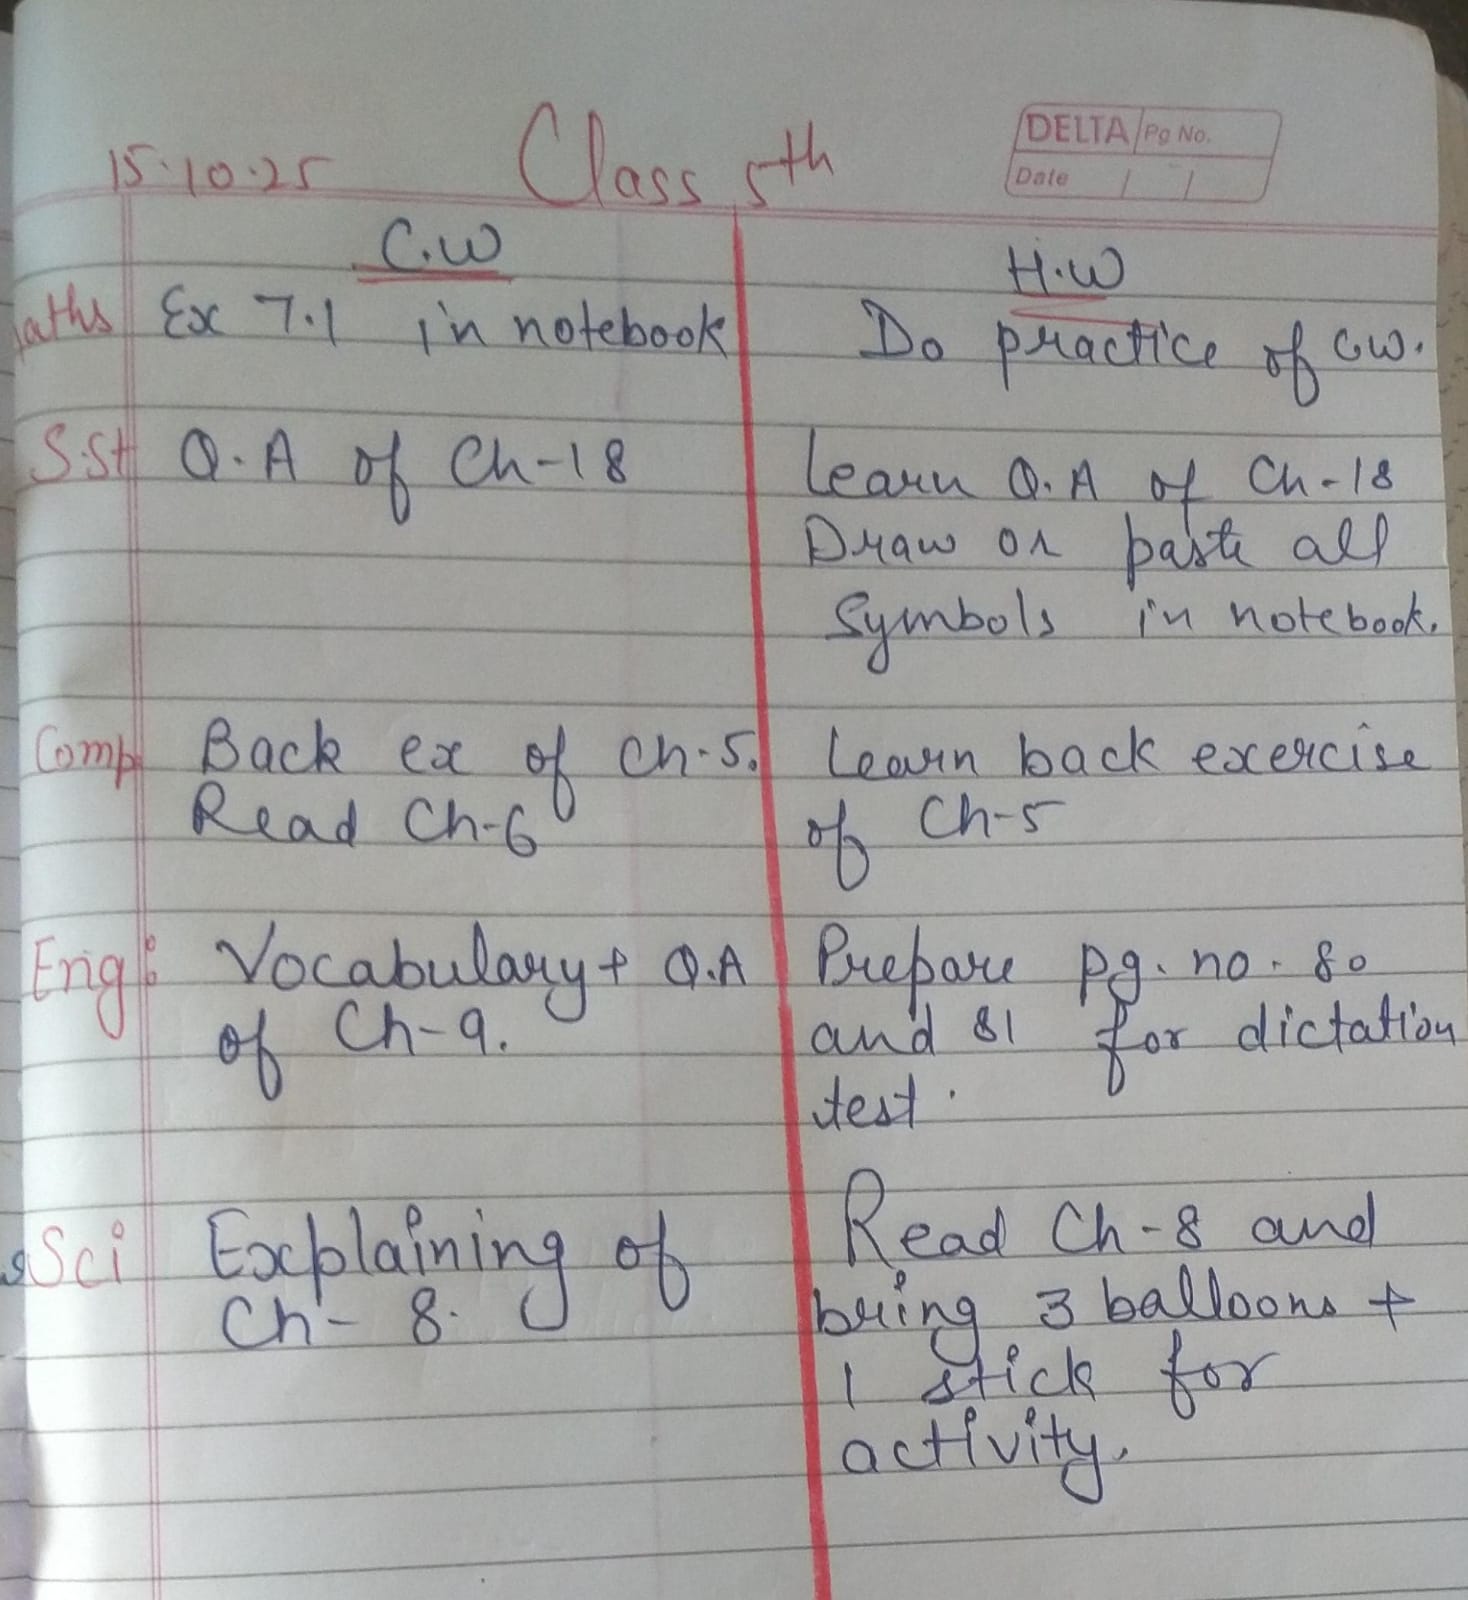 15.10.25 Class 5th
DELTA Pg No.
Date / /
C.W
H.W
aths Ex 7.1 in notebook
Do practice of C.W.
S.St Q.A of Ch-18
Learn Q.A of Ch-18
Draw or paste all
Symbols in notebook.
Comp Back ex of Ch-5.
Read Ch-6
Learn back exercise
of Ch-5
Eng: Vocabulary + Q.A
of Ch-9.
Prepare pg. no. 80
and 81 for dictation
test.
Sci Explaining of
Ch-8.
Read Ch-8 and
bring 3 balloons +
1 stick for
activity.